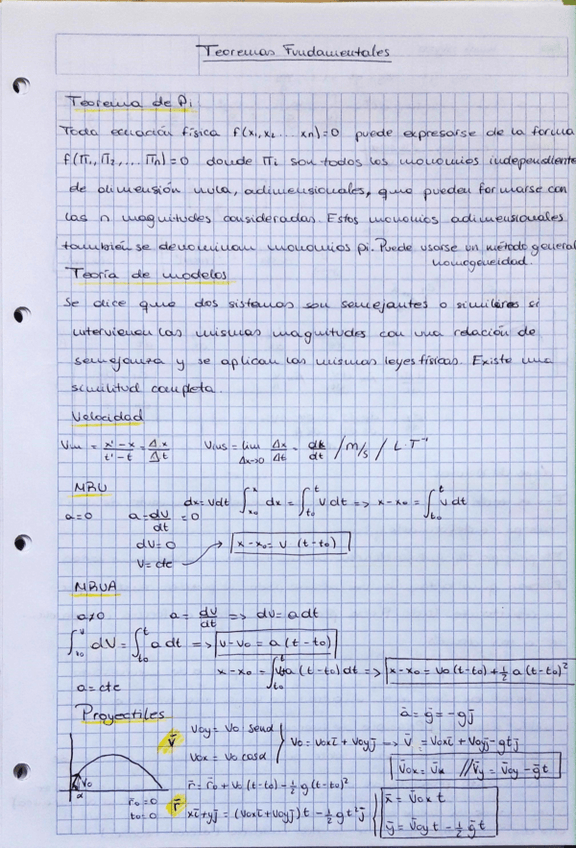 Teoremas Fundamentales
Teorema de Pi
Toda ecuación física f(x₁,x₂...xn)=0 puede expresarse de la forma
f(Π₁,Π₂,...Πn)=0 donde Πi son todos los monomios independientes
de dimensión nula, adimensionales, que pueden formarse con
las n magnitudes consideradas. Estos monomios adimensionales
también se denominan monomios pi. Puede usarse un método general
homogeneidad.
Teoría de modelos
Se dice que dos sistemas son semejantes o similares si
intervienen las mismas magnitudes con una relación de
semejanza y se aplican las mismas leyes físicas. Existe una
similitud completa.
Velocidad
Vm = x'-x/t'-t = Δx/Δt Vins = lim Δx→0 Δx/Δt = dx/dt / m/s / L·T⁻¹
MRU
dx=vdt ∫ₓ₀ˣ dx = ∫ₜ₀ᵗ v dt => x-x₀ = ∫ₜ₀ᵗ v dt
a=0 a=dv/dt = 0
dv=0
v=cte x-x₀= v (t-t₀)
MRUA
a≠0 a = dv/dt => dv=adt
∫ᵥ₀ᵛ dv = ∫ₜ₀ᵗ a dt => v-v₀ = a(t-t₀)
x-x₀ = ∫ₜ₀ᵗ a(t-t₀)dt => x-x₀ = v₀(t-t₀)+½ a(t-t₀)²
a=cte
Proyectiles
ā = ḡ = -gj̄
v̄ Voy = Vo senα
Vox = Vo cosα
Vo = Voxī + Voyj̄ => V̄ = Voxī + Voyj̄-gtj̄
V̄ox = V̄x // V̄y = V̄oy - ḡt
Vo
α
r̄ = r̄₀ + v₀(t-t₀) - ½ g(t-t₀)²
r̄₀=0
t₀=0
r̄ xī+yj̄ = (Voxī+Voyj̄)t - ½gt²j̄
x̄ = V̄ox t
ȳ = V̄oy t - ½ ḡ t